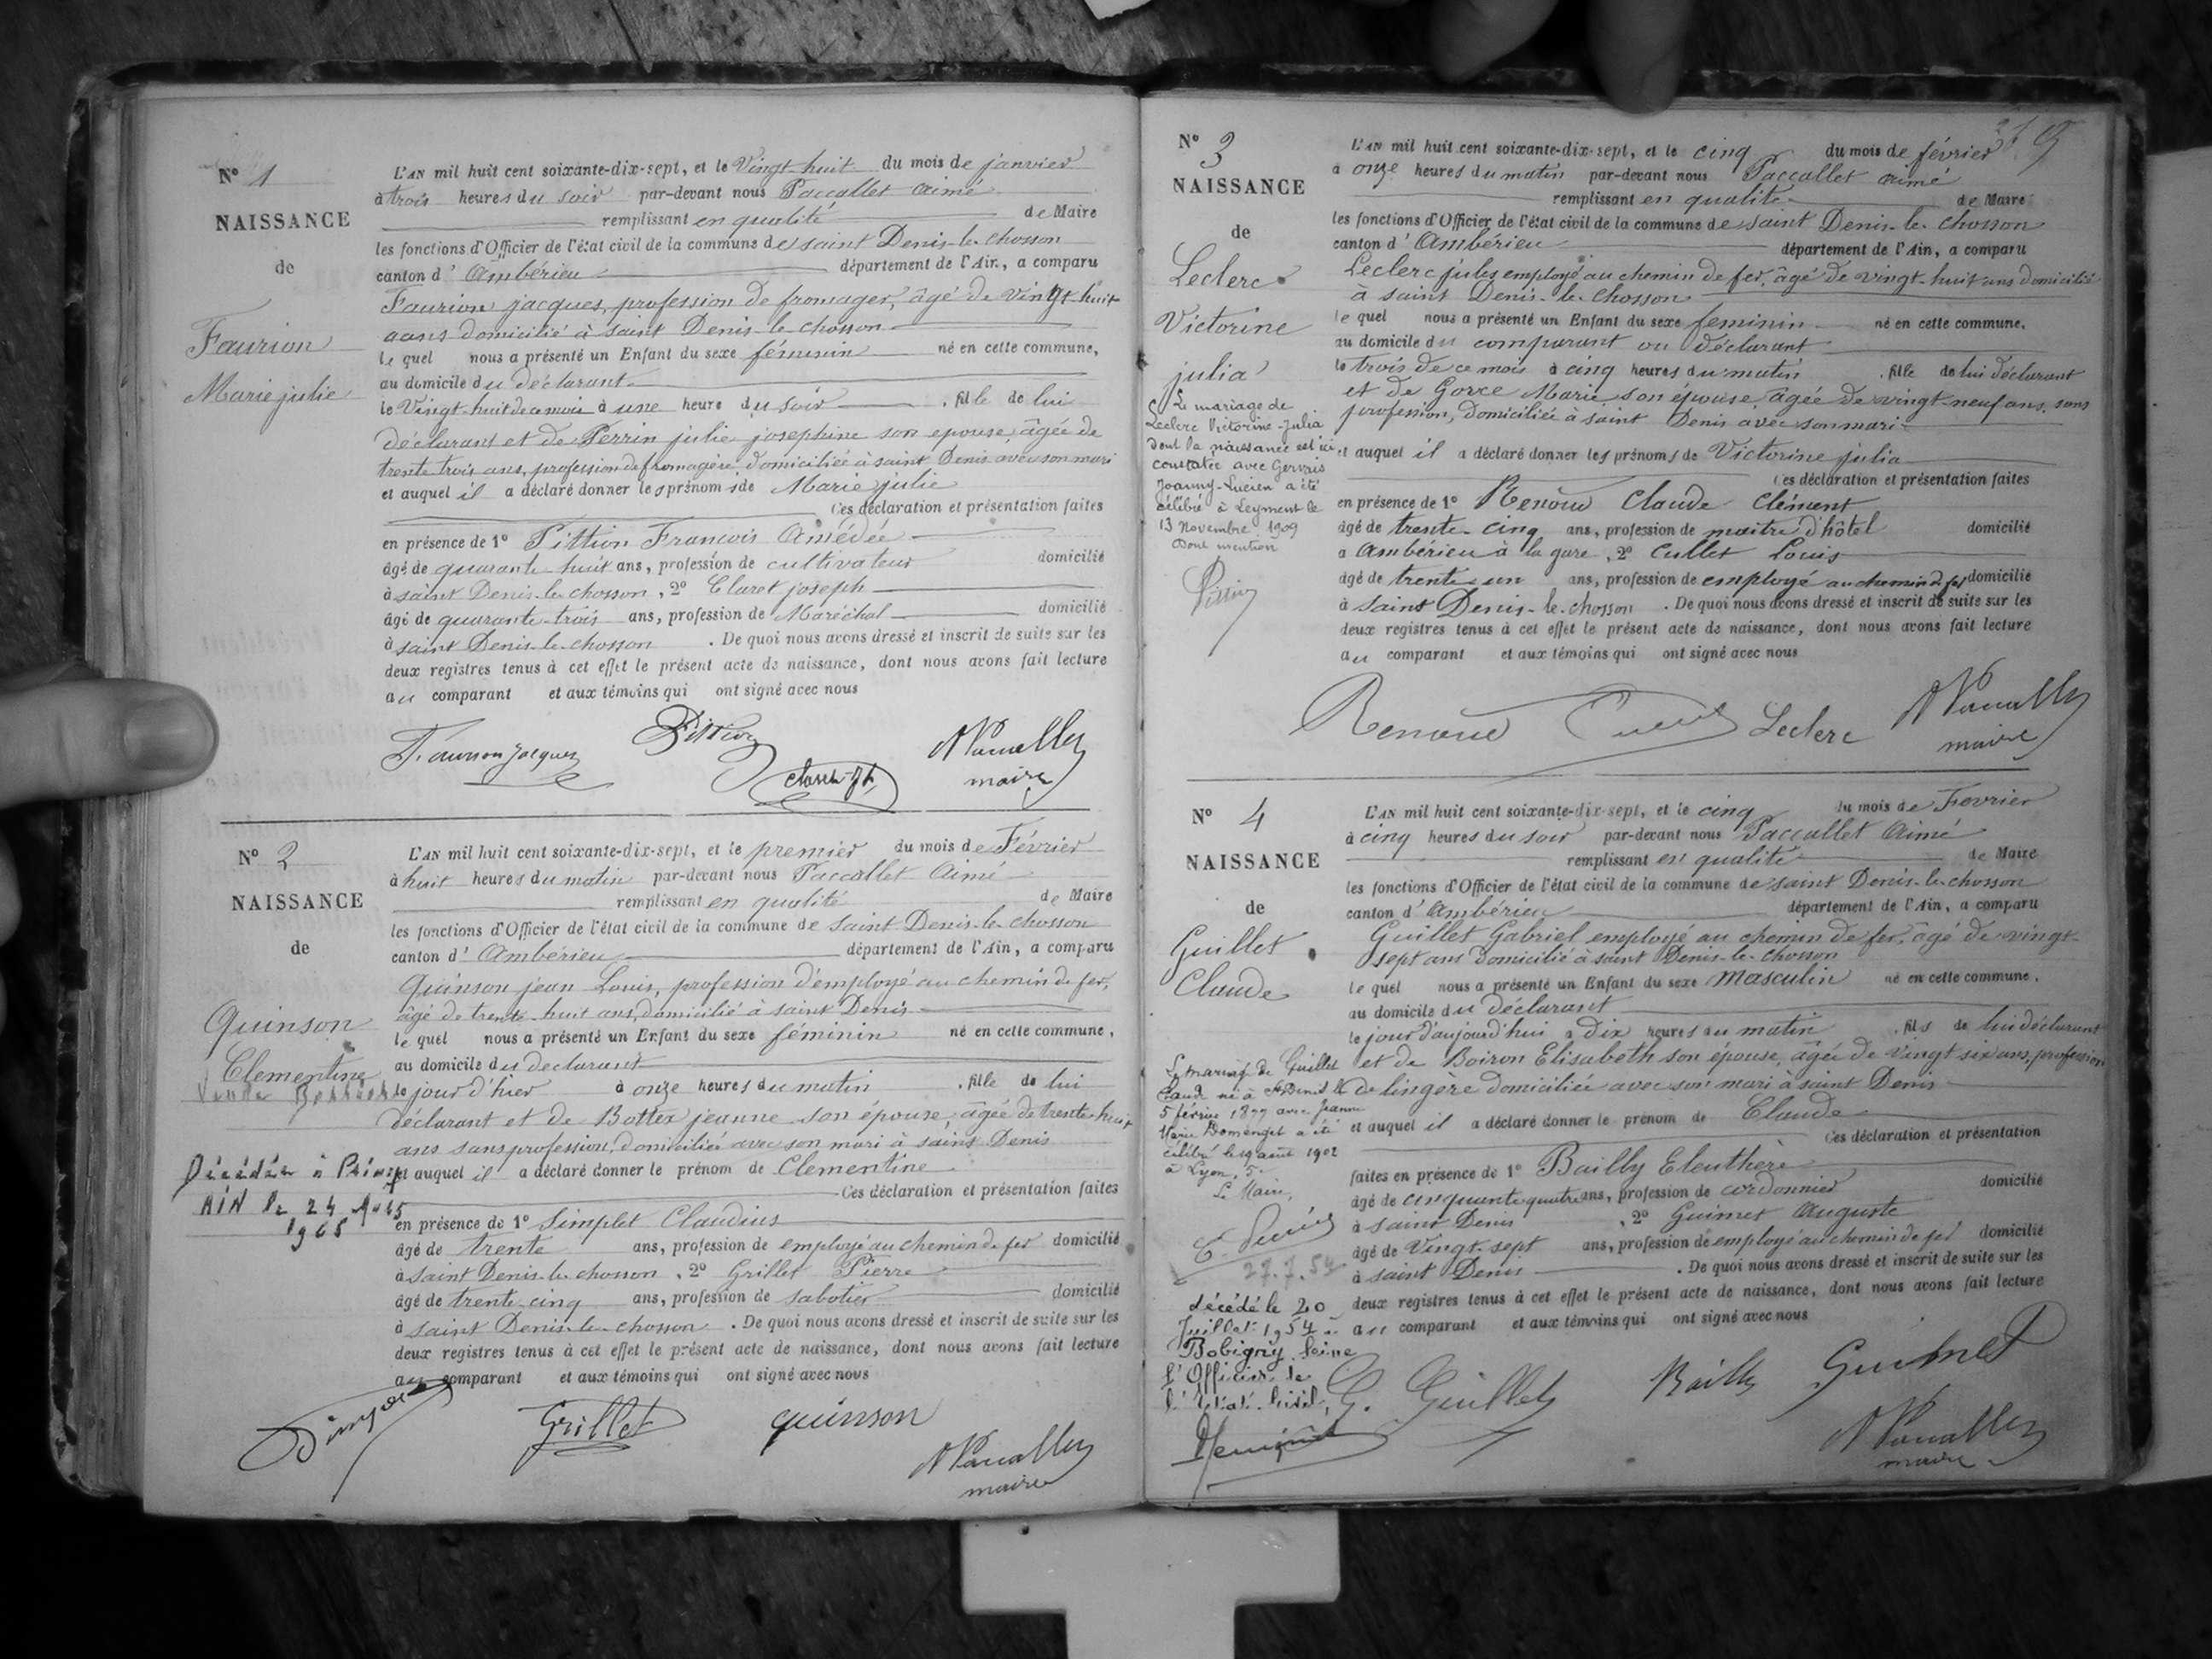 N° 1
NAISSANCE
de
Faurion
Marie julie
L'AN mil huit cent soixante-dix-sept, et le Vingt-huit du mois de janvier
à trois heures du soir par-devant nous Paccallet Aimé
remplissant en qualité de Maire
les fonctions d'Officier de l'état civil de la commune de saint Denis-le-chosson
canton d'Ambérieu département de l'Ain, a comparu
Faurion jacques, profession de fromager, âgé de vingt-huit
aans domicilié à saint Denis-le-chosson
le quel nous a présenté un Enfant du sexe féminin né en cette commune,
au domicile du déclarant
le Vingt-huit de ce mois à une heure du soir, fille de lui
déclarant et de Perrin julie josephine son epouse, âgée de
trente trois ans, profession de fromagère, domiciliée à saint Denis avec son mari
et auquel il a déclaré donner les prénoms de Marie julie
Ces déclaration et présentation faites
en présence de 1° Pittion François Amédée
âgé de quarante-huit ans, profession de cultivateur domicilié
à saint Denis-le-chosson, 2° Claret joseph
âgé de quarante-trois ans, profession de Maréchal domicilié
à saint Denis-le-chosson. De quoi nous avons dressé et inscrit de suite sur les
deux registres tenus à cet effet le présent acte de naissance, dont nous avons fait lecture
au comparant et aux témoins qui ont signé avec nous
Faurion Jacques Pittion Claret jh APaccallet
maire
N° 2
NAISSANCE
de
Quinson
Clementine
Décédée à
AIN le 24 Août
1965
L'AN mil huit cent soixante-dix-sept, et le premier du mois de Février
à huit heures du matin par-devant nous Paccallet Aimé
remplissant en qualité de Maire
les fonctions d'Officier de l'état civil de la commune de saint Denis-le-chosson
canton d'Ambérieu département de l'Ain, a comparu
Quinson jean Louis, profession d'employé au chemin de fer,
âgé de trente-huit ans, domicilié à saint Denis
le quel nous a présenté un Enfant du sexe féminin né en cette commune,
au domicile du declarant
le jour d'hier à onze heures du matin, fille de lui
déclarant et de Bottex jeanne son épouse, âgée de trente-huit
ans sans profession, domiciliée avec son mari à saint Denis
et auquel il a déclaré donner le prénom de Clementine
Ces déclaration et présentation faites
en présence de 1° Simplet Claudius
âgé de trente ans, profession de employé au chemin de fer domicilié
à saint Denis-le-chosson, 2° Grillet Pierre
âgé de trente-cinq ans, profession de sabotier domicilié
à saint Denis-le-chosson. De quoi nous avons dressé et inscrit de suite sur les
deux registres tenus à cet effet le présent acte de naissance, dont nous avons fait lecture
au comparant et aux témoins qui ont signé avec nous
Simplet Grillet quinson APaccallet
maire
N° 3
NAISSANCE
de
Leclerc
Victorine
julia
Le mariage de
Leclerc Victorine-Julia
dont la naissance est ici
constatée avec Gervais
Joanny-Lucien a été
célébré à Leyment le
13 Novembre 1909
Dont mention
Pittion
L'AN mil huit cent soixante-dix-sept, et le cinq du mois de février
à onze heures du matin par-devant nous Paccallet aimé
remplissant en qualité de Maire
les fonctions d'Officier de l'état civil de la commune de saint Denis-le-chosson
canton d'Ambérieu département de l'Ain, a comparu
Leclerc jules employé au chemin de fer, âgé de vingt-huit ans domicilié
à saint Denis-le-chosson
le quel nous a présenté un Enfant du sexe feminin né en cette commune,
au domicile du comparant ou déclarant
le trois de ce mois à cinq heures du matin, fille de lui déclarant
et de Gorce Marie son épouse âgée de vingt-neuf ans, sans
profession, domiciliée à saint Denis avec son mari
et auquel il a déclaré donner les prénoms de Victorine julia
Ces déclaration et présentation faites
en présence de 1° Renoud Claude Clément
âgé de trente-cinq ans, profession de maitre d'hôtel domicilié
à Ambérieu à la gare, 2° Cullet Louis
âgé de trente-un ans, profession de employé au chemin de fer domicilié
à saint Denis-le-chosson. De quoi nous avons dressé et inscrit de suite sur les
deux registres tenus à cet effet le présent acte de naissance, dont nous avons fait lecture
au comparant et aux témoins qui ont signé avec nous
Renoud Cullet Leclerc APaccallet
maire
N° 4
NAISSANCE
de
Guillet
Claude
Le mariage de Guillet
Claude né à St Denis le
5 février 1877 avec Jeanne
Marie Domenget a été
célébré le 19 août 1902
à Lyon, 5e
Le Maire,
27.7.54
décédé le 20
Juillet 1954 à
Bobigny Seine
l'Officier de
l'Etat Civil,
L'AN mil huit cent soixante-dix-sept, et le cinq du mois de Fevrier
à cinq heures du soir par-devant nous Paccallet Aimé
remplissant en qualité de Maire
les fonctions d'Officier de l'état civil de la commune de saint Denis-le-chosson
canton d'Ambérieu département de l'Ain, a comparu
Guillet Gabriel employé au chemin de fer, âgé de vingt-
sept ans domicilié à saint Denis-le-chosson
le quel nous a présenté un Enfant du sexe masculin né en cette commune.
au domicile du déclarant
le jour d'aujourd'hui à dix heures du matin, fils de lui déclarant
et de Boiron Elisabeth son épouse, âgée de vingt six ans, profession
de lingère domiciliée avec son mari à saint Denis
et auquel il a déclaré donner le prénom de Claude
Ces déclaration et présentation
faites en présence de 1° Bailly Eleuthère
âgé de cinquante quatre ans, profession de cordonnier domicilié
à saint Denis, 2° Guimet Auguste
âgé de Vingt-sept ans, profession de employé au chemin de fer domicilié
à saint Denis. De quoi nous avons dressé et inscrit de suite sur les
deux registres tenus à cet effet le présent acte de naissance, dont nous avons fait lecture
au comparant et aux témoins qui ont signé avec nous
G. Guillet Bailly Guimet
APaccallet
maire